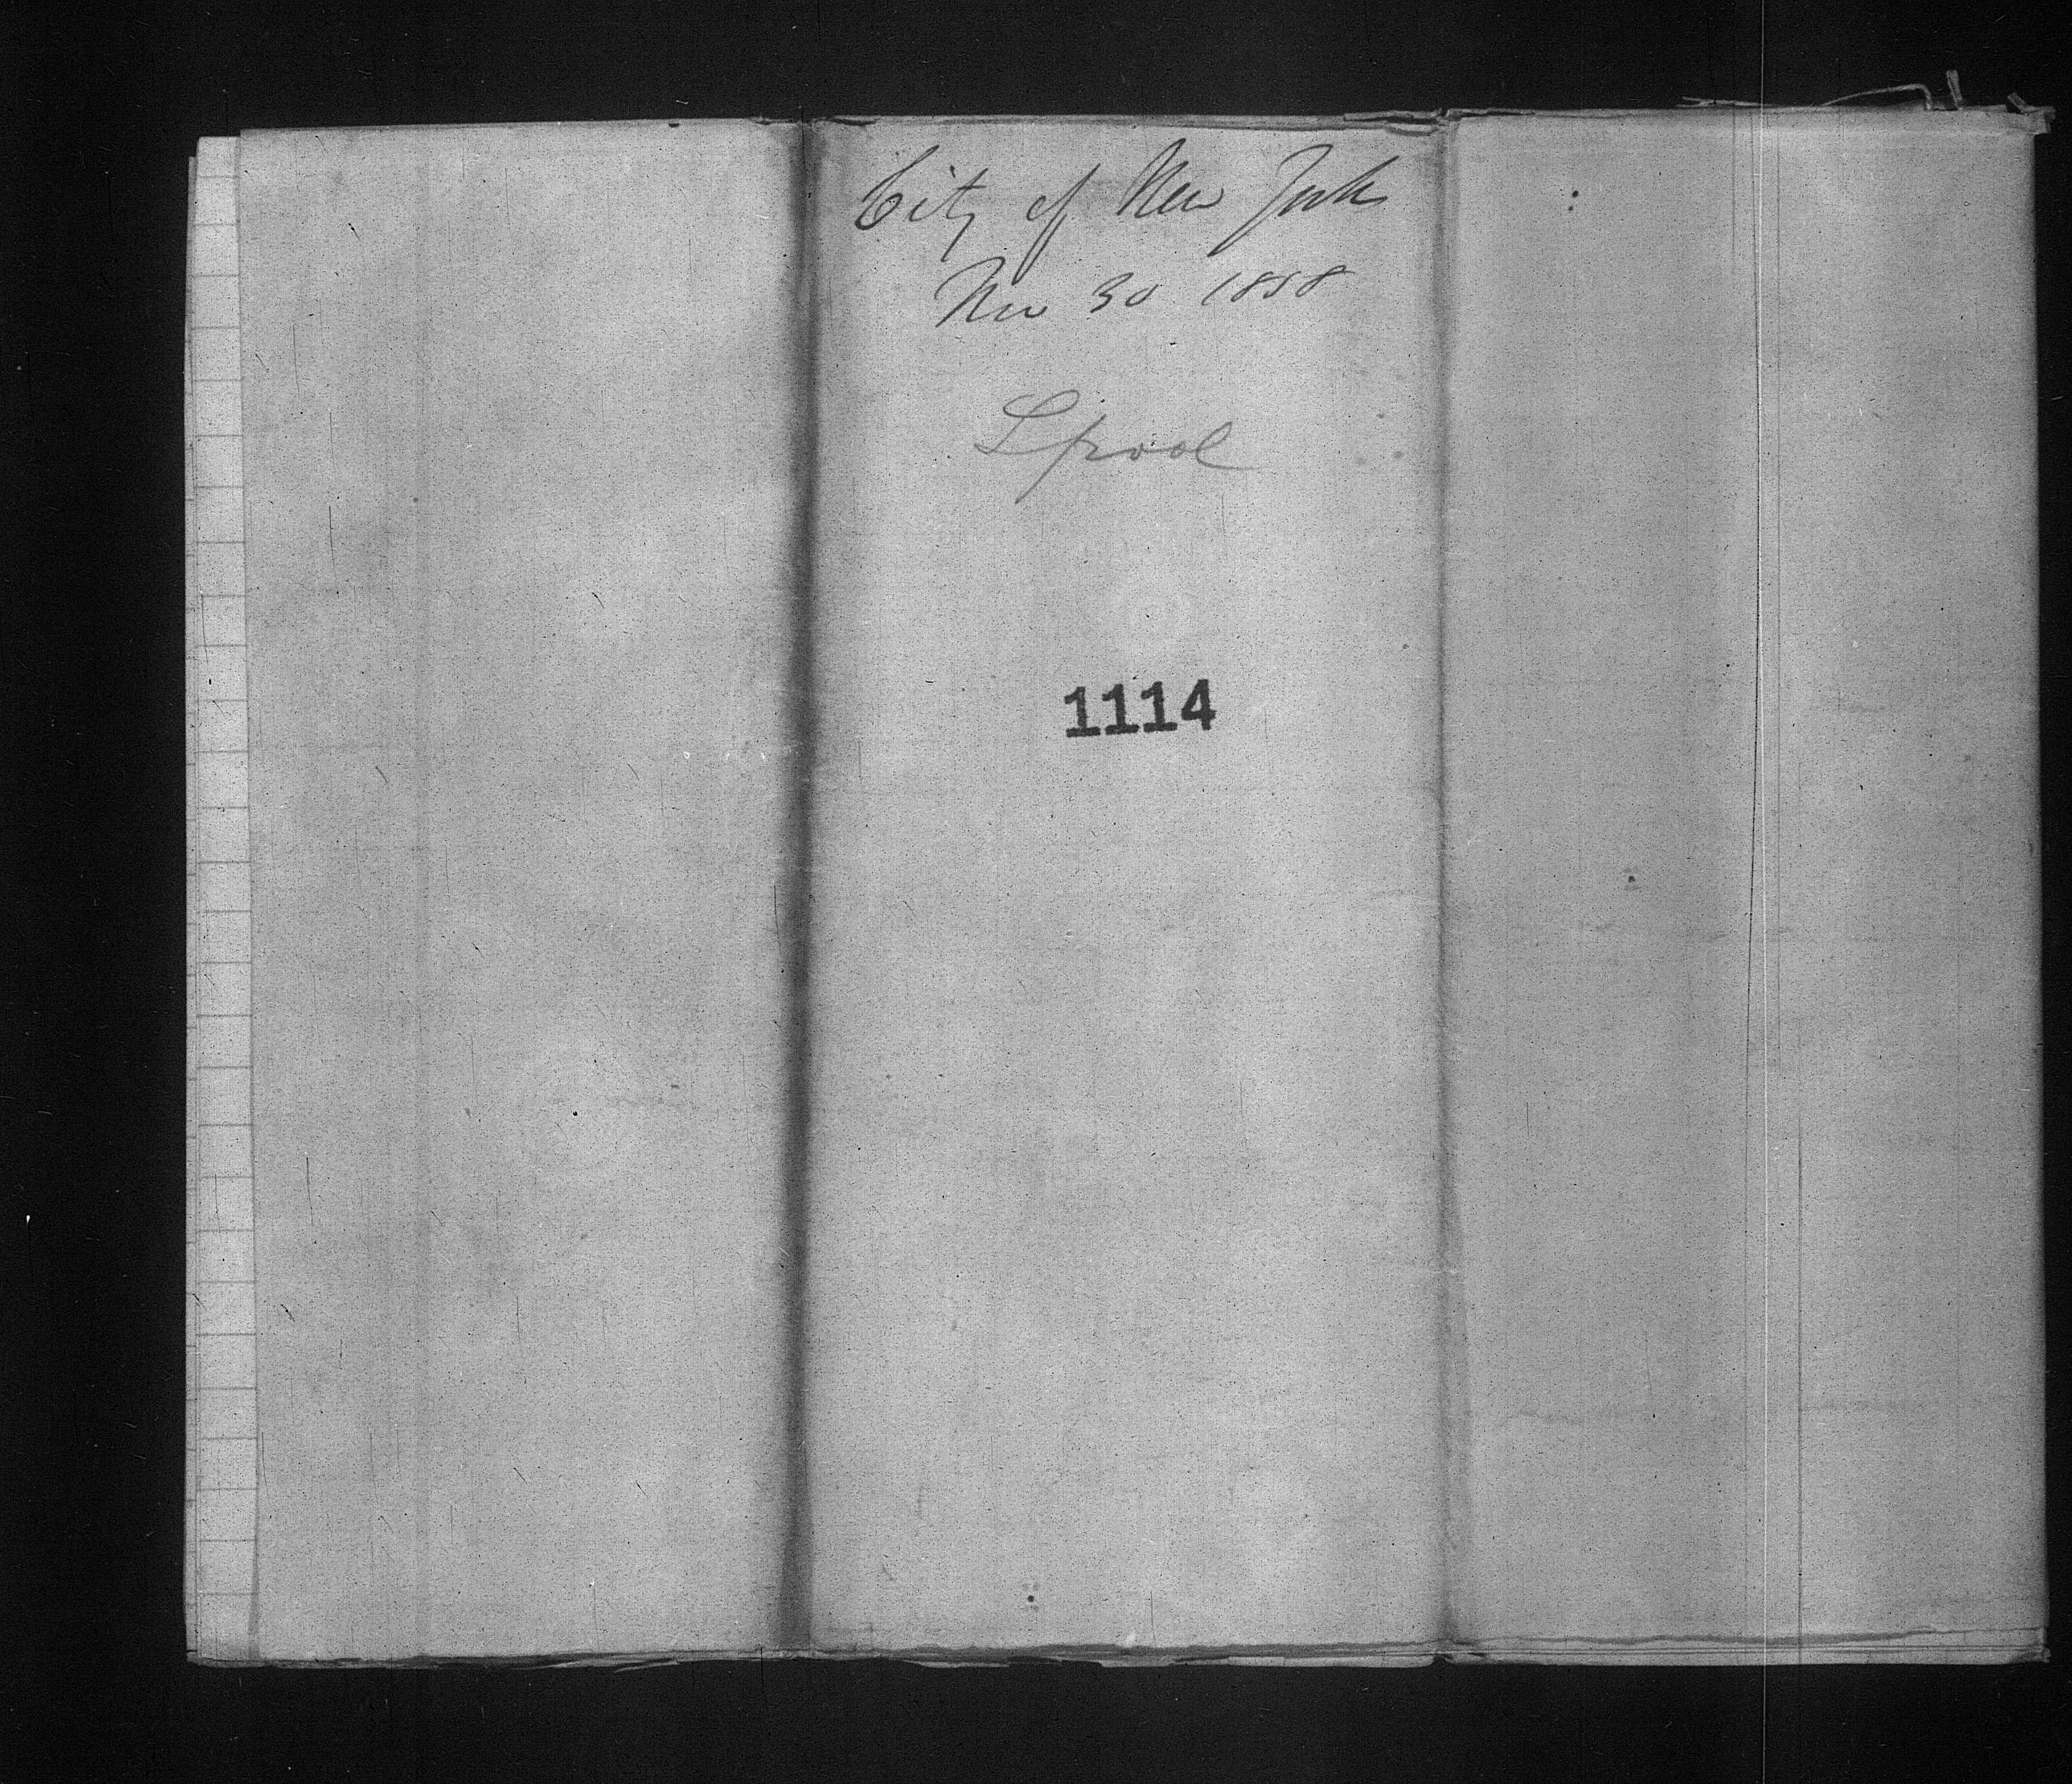 City of New York
Nov 30 1858
Lpool
1114